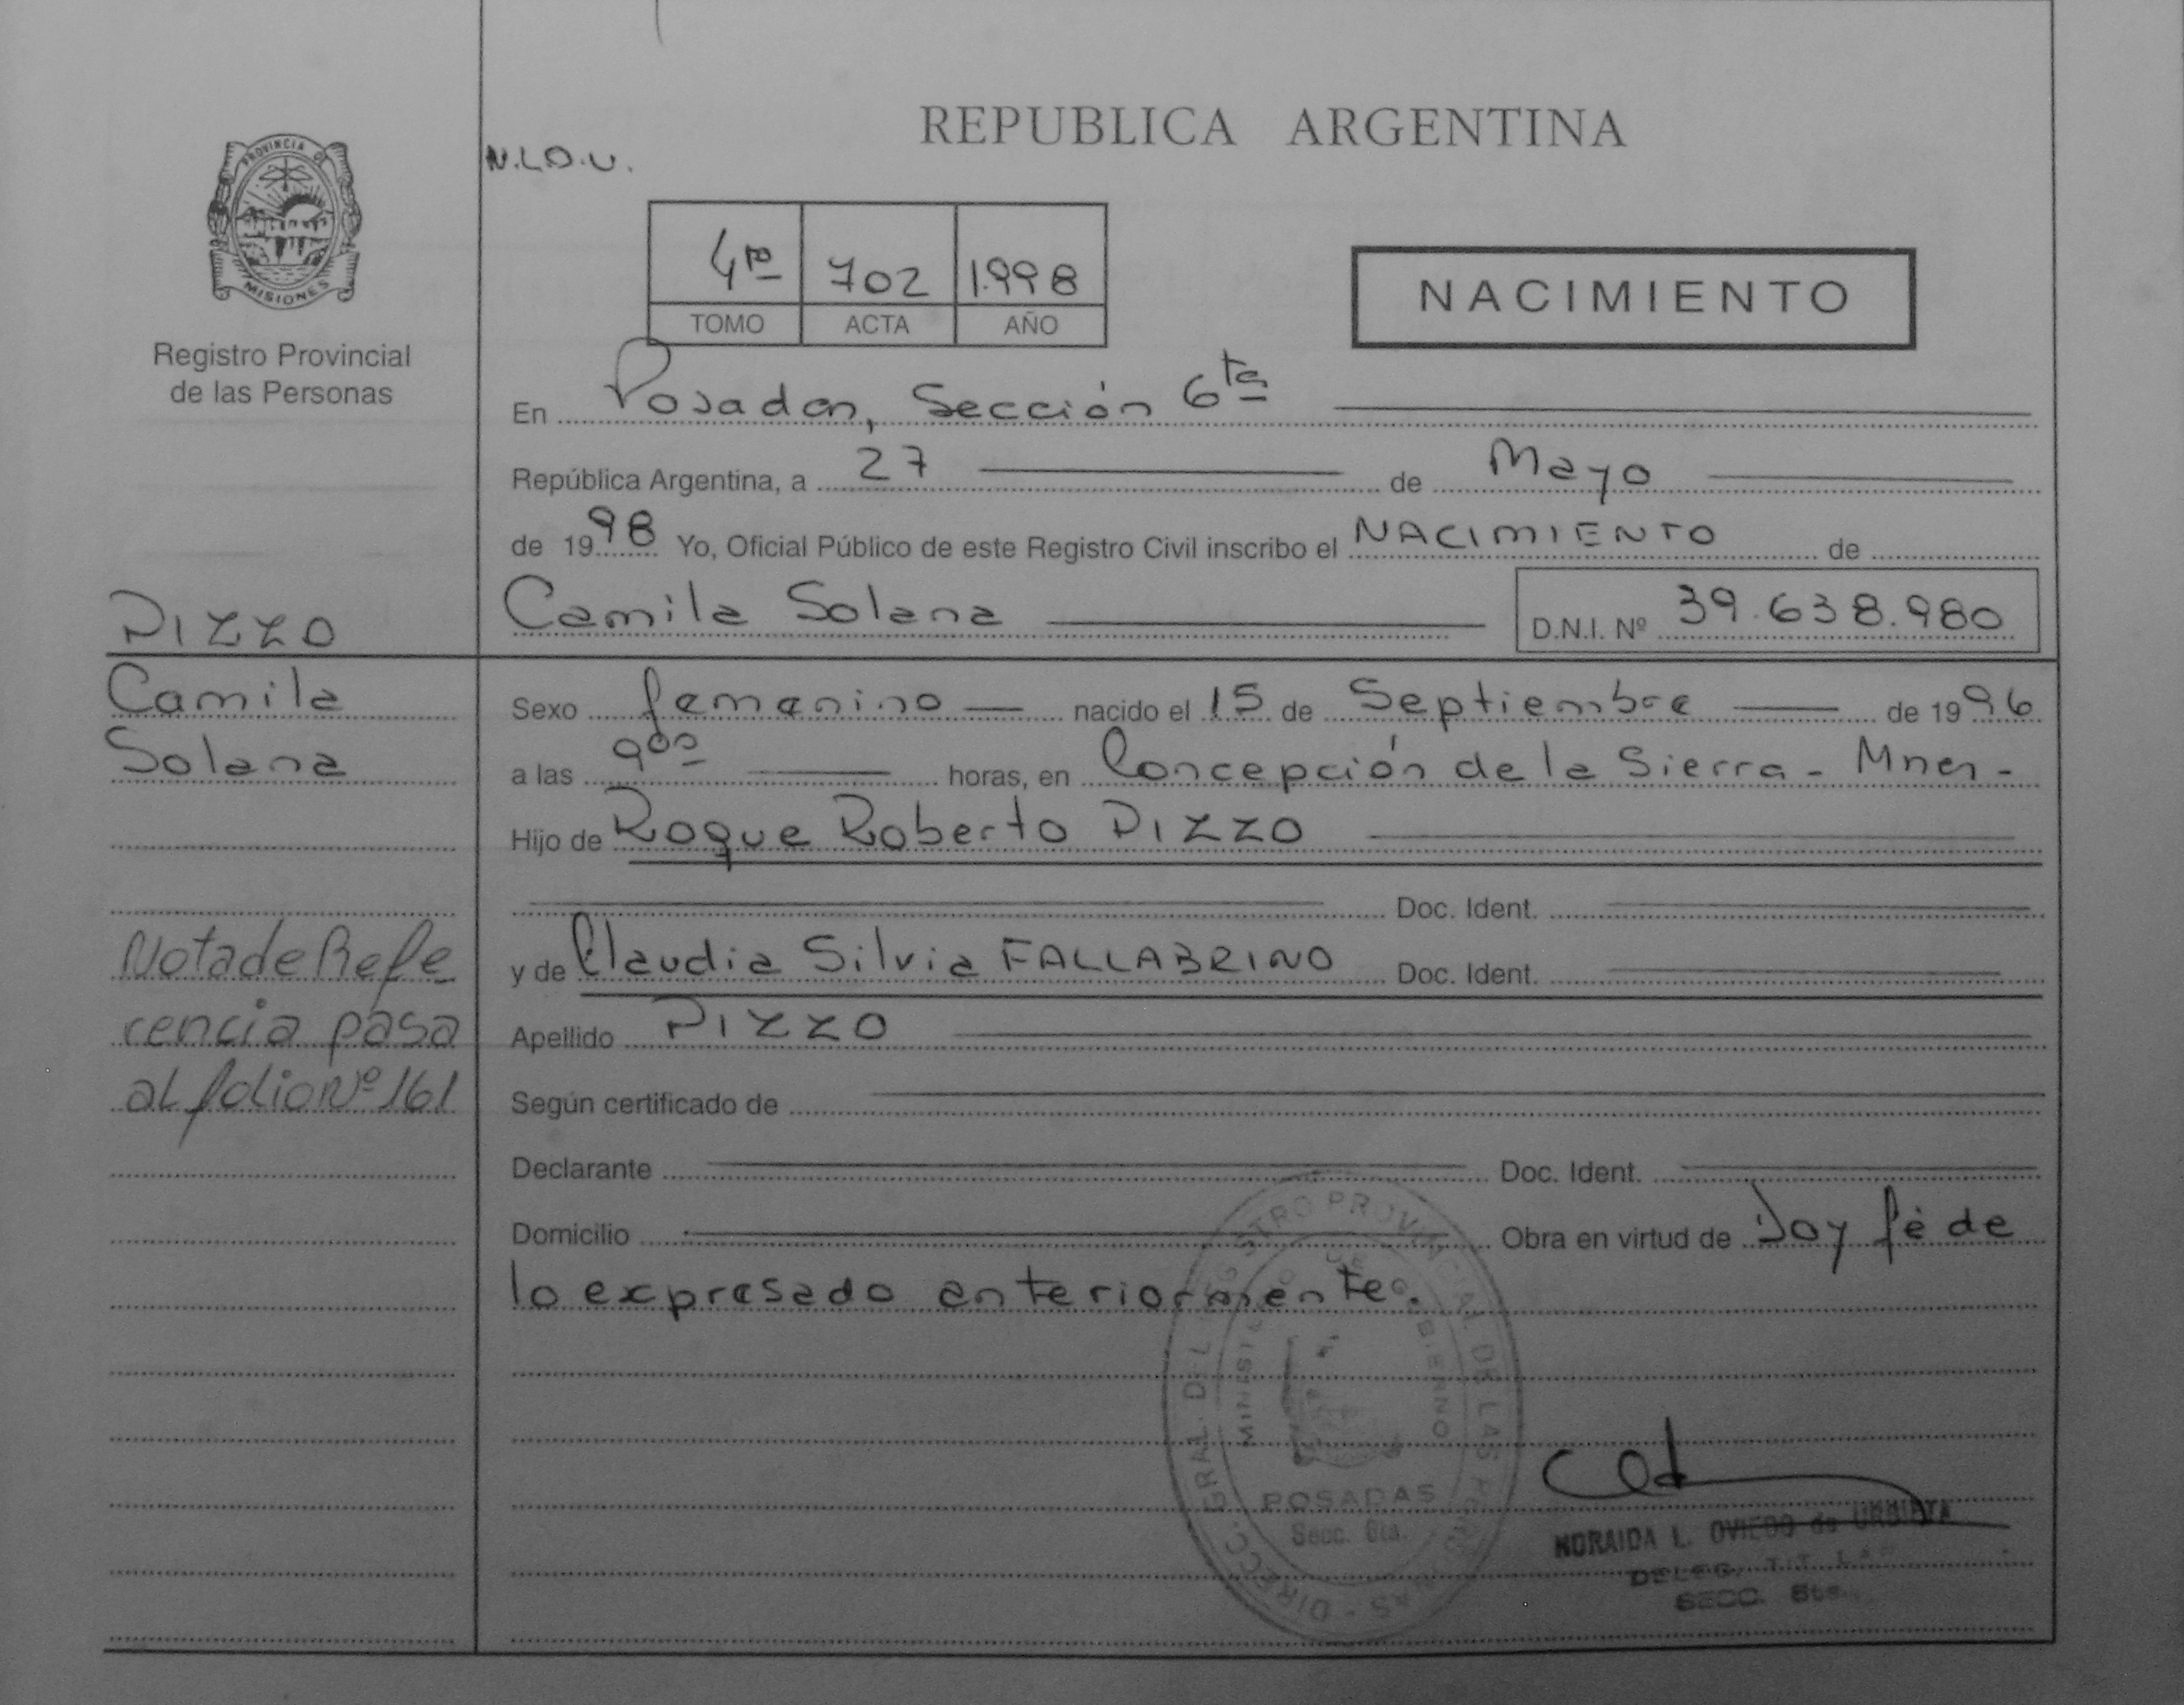 REPUBLICA ARGENTINA
PROVINCIA DE
MISIONES
Registro Provincial
de las Personas
N.L.D.U.
4to 702 1.998
TOMO ACTA AÑO
NACIMIENTO
En Posadas, Sección 6ta
República Argentina, a 27 de Mayo
de 1998 Yo, Oficial Público de este Registro Civil inscribo el NACIMIENTO de
Camila Solana D.N.I. Nº 39.638.980
PIZZO
Camila
Solana
Sexo femenino nacido el 15 de Septiembre de 1996
a las 9oo horas, en Concepción de la Sierra - Mnes -
Hijo de Roque Roberto PIZZO
Doc. Ident.
y de Claudia Silvia FALLABRINO Doc. Ident.
Apellido PIZZO
Según certificado de
Nota de Refe
rencia pasa
al folio Nº 161
Declarante Doc. Ident.
Domicilio Obra en virtud de Doy fé de
lo expresado anteriormente.
DIRECC. GRAL. DEL REGISTRO PROVINCIAL DE LAS PERSONAS
MINISTERIO DE GOBIERNO
POSADAS
Secc. 6ta.
NORAIDA L. OVIEDO de URBIETA
DELEG. TIT.
SECC. 6ta.